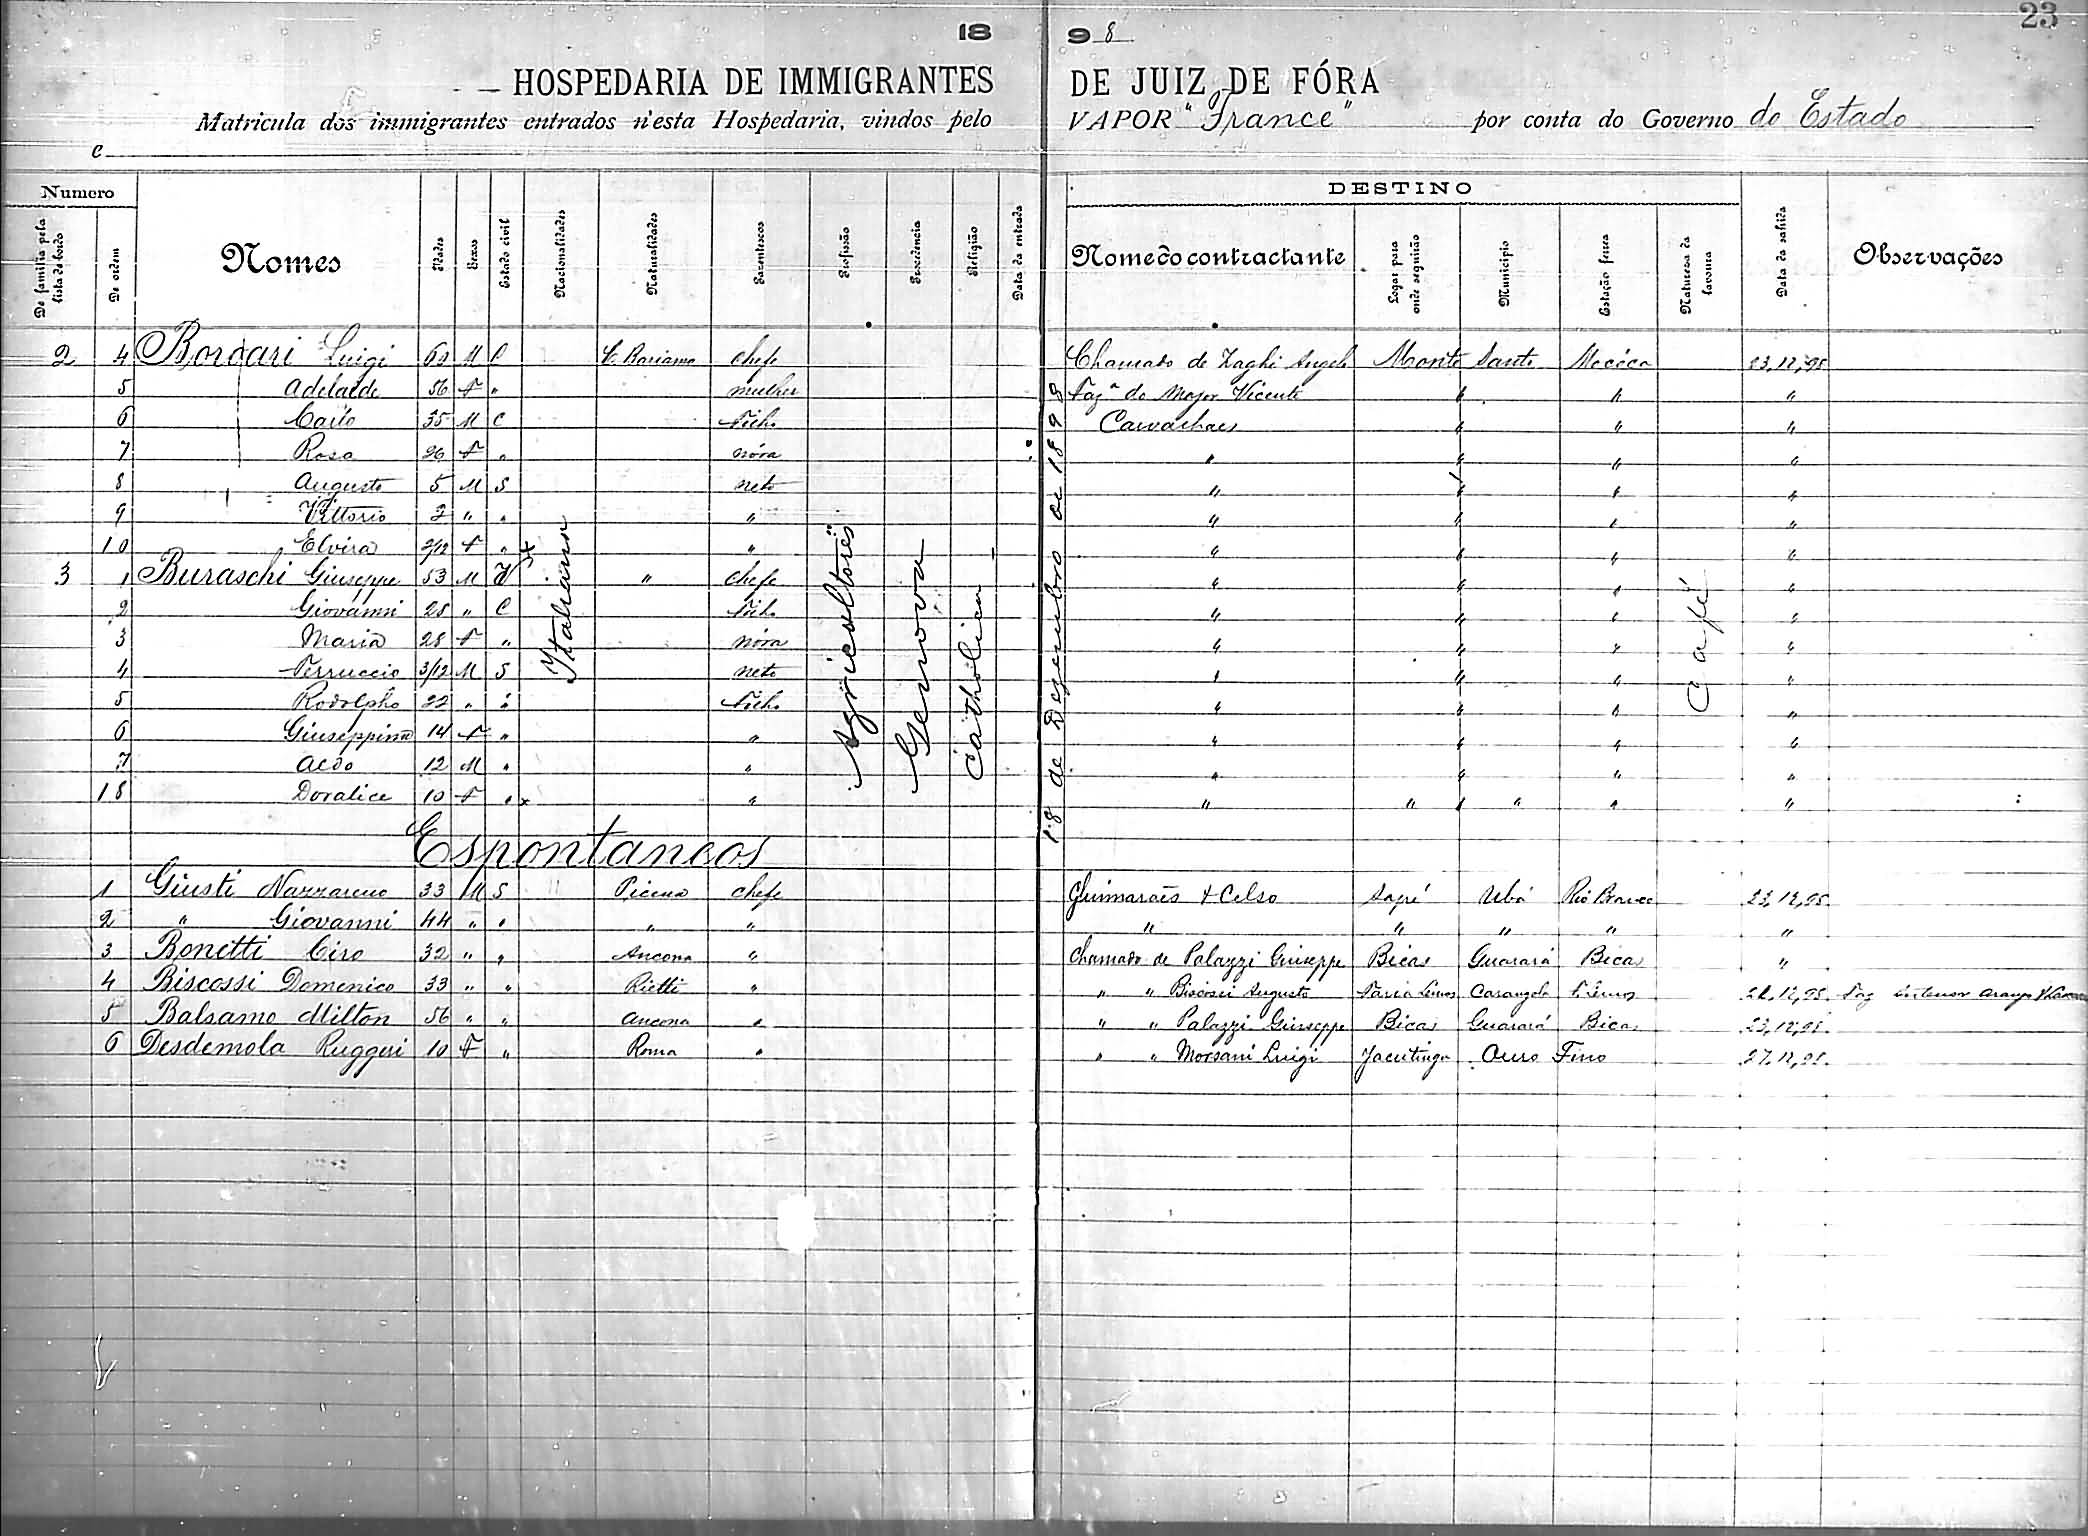 23
18 98
HOSPEDARIA DE IMMIGRANTES DE JUIZ DE FÓRA
Matricula dos immigrantes entrados n'esta Hospedaria, vindos pelo VAPOR "France" por conta do Governo do Estado
e
Numero DESTINO
De familia pela lista de bordo De ordem Nomes Idades Sexos Estado civil Nacionalidades Naturalidades Parentescos Profissão Procedencia Religião Data da entrada Nome do contractante Logar para onde seguirão Municipio Estação ferrea Naturesa da lavoura Data da sahida Observações
2 4 Luigi M C chefe Chamado de Zaghi Angelo Monte Santo Mocóca 23,12,98
5 Adelaide 56 F " mulher Faz.ª do Major Vicente " " "
6 Carlo 35 M C Filho Carvalhaes " " "
7 Rosa 26 F " nóra " " " "
8 Augusto 5 M S neto " " " "
9 Vittorio 2 " " " " " " "
10 Elvira 2/12 F " " " " " "
3 1 Buraschi Giuseppe 53 M V " chefe " " " "
2 Giovanni 28 " C Filho " " " "
3 Maria 28 F " nóra " " " "
4 Ferruccio 3/12 M S neto " " " "
5 Rodolpho 22 " " Filho " " " "
6 Giuseppina 14 F " " " " " "
7 Aldo 12 M " " " " " "
18 Doralice 10 F " " " " " " "
Italiana
Agricoltores
Genova
Catholica
18 de Dezembro de 1898
Café
Espontaneos
1 Giusti Nazzareno 33 M S Picena chefe Guimarães & Celso Sapé Ubá Rio Branco 23,12,98.
2 " Giovanni 44 " " " " " " " " "
3 Bonetti Ciro 32 " " Ancona " Chamado de Palazzi Giuseppe Bicas Guarará Bicas "
4 Biscossi Domenico 33 " " Rietti " " " Biscossi Augusto Faria Lemos Carangola Lemos 12,98. Faz
5 Balsamo Milton 56 " " Ancona " " " Palazzi Giuseppe Bicas Guarará Bicas 23,12,98.
6 Desdemola Ruggeri 10 F " Roma " " " Morsani Luigi Jacutinga Ouro Fino 27,12,98.